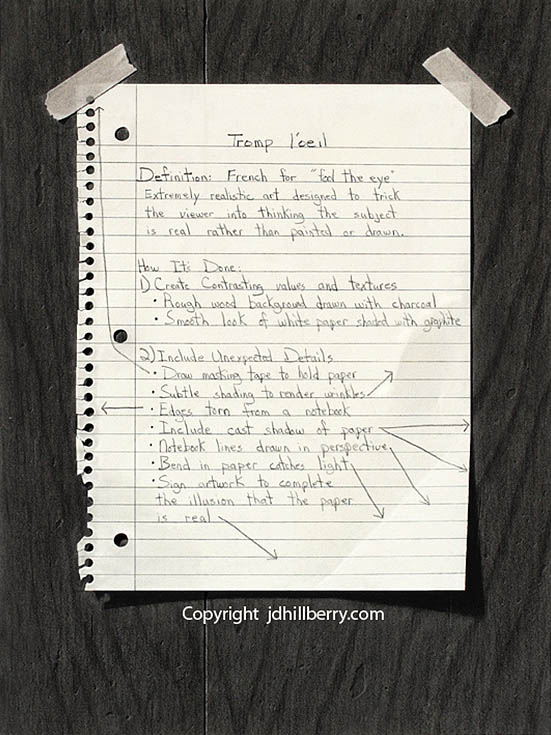 Tromp l'oeil
Definition: French for "fool the eye"
Extremely realistic art designed to trick
the viewer into thinking the subject
is real rather than painted or drawn.
How It's Done:
1) Create Contrasting values and textures
• Rough wood background drawn with charcoal
• Smooth look of white paper shaded with graphite
2) Include Unexpected Details
• Draw masking tape to hold paper
• Subtle shading to render wrinkles
• Edges torn from a notebook
• Include cast shadow of paper
• Notebook lines drawn in perspective
• Bend in paper catches light
• Sign artwork to complete
the illusion that the paper
is real
Copyright jdhillberry.com